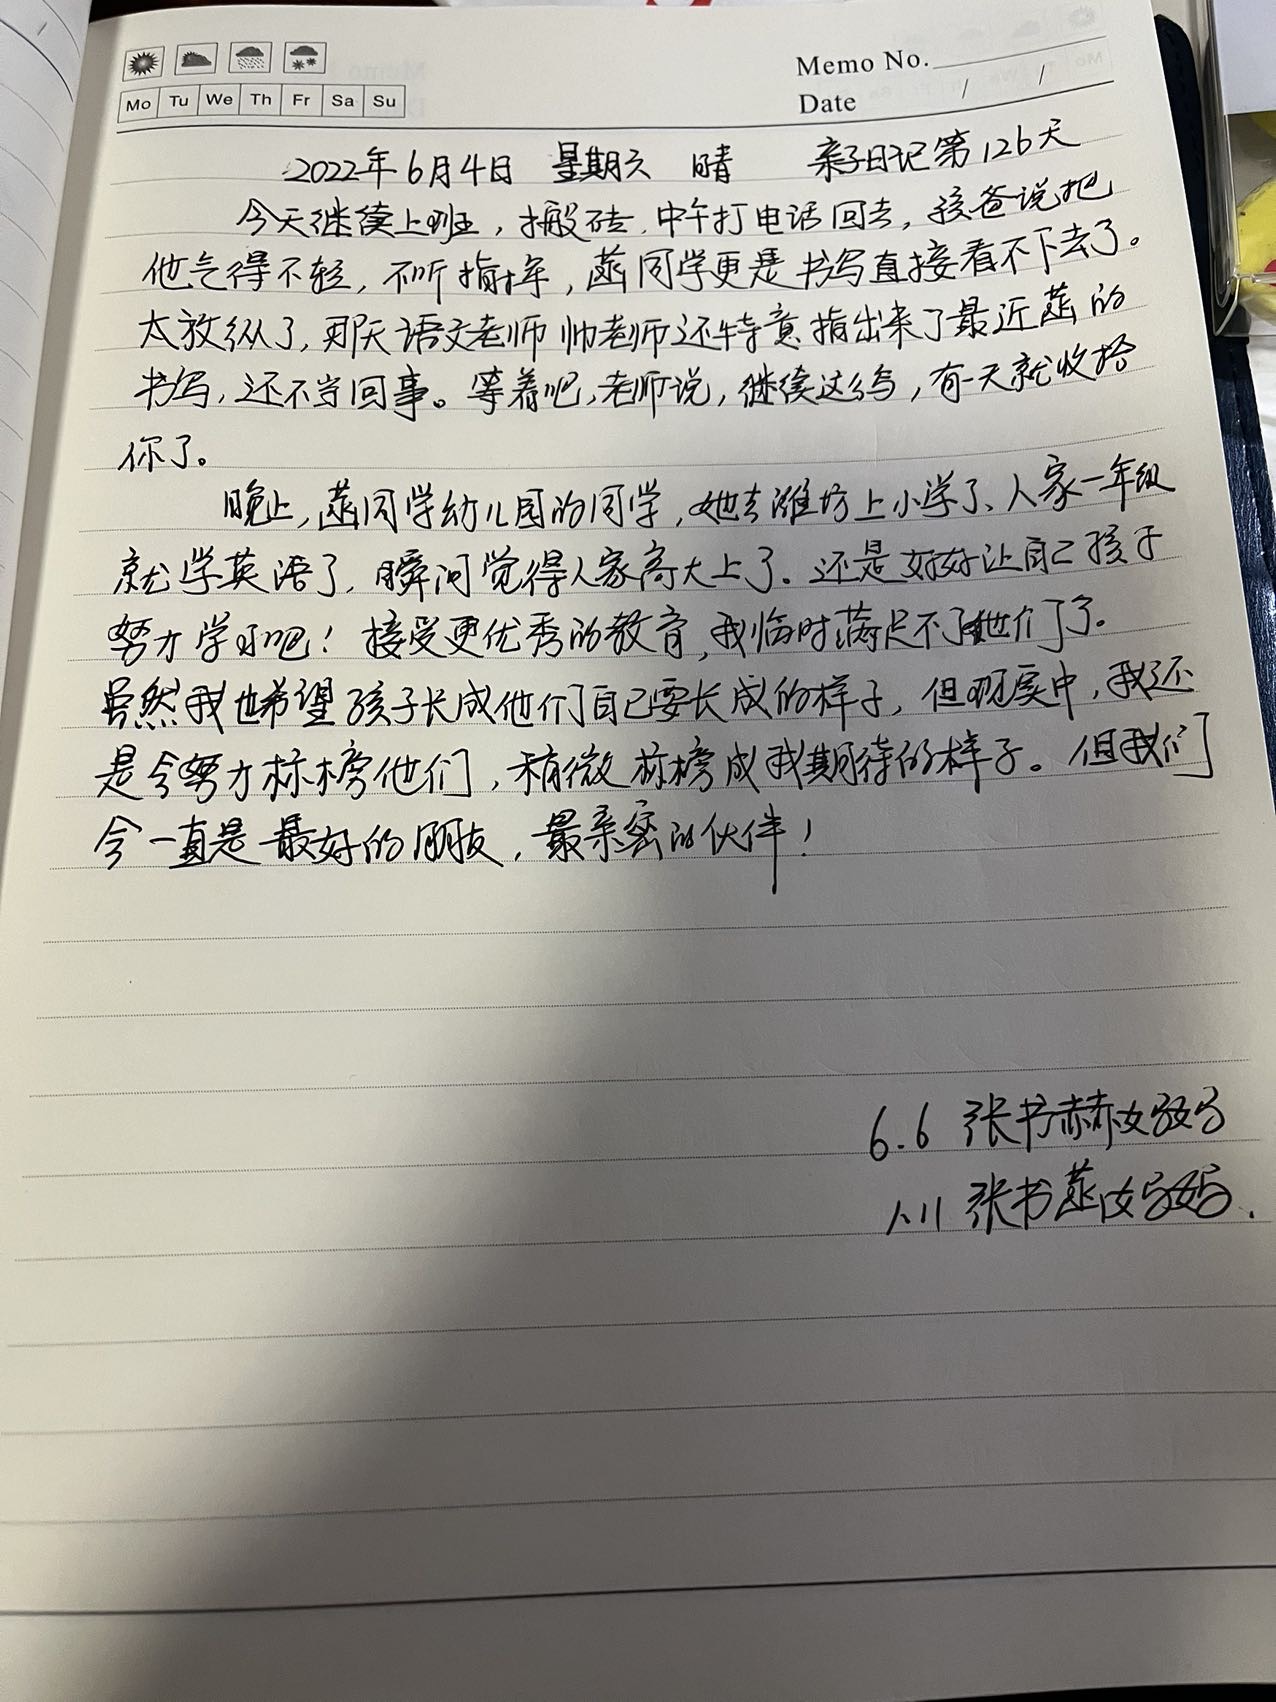 Memo No.
Mo Tu We Th Fr Sa Su
Date / /
2022年6月4日 星期六 晴 亲子日记第126天
今天继续上班，搬砖，中午打电话回去，孩爸说把
他气得不轻，不听指挥，菡同学更是书写直接看不下去了。
太放纵了，那天语文老师帅老师还特意指出来了最近菡的
书写，还不当回事。等着吧，老师说，继续这么写，有一天就收拾
你了。
晚上，菡同学幼儿园的同学，她去潍坊上小学了、人家一年级
就学英语了，瞬间觉得人家高大上了。还是好好让自己孩子
努力学习吧！接受更优秀的教育，我临时满足不了他们了。
虽然我也希望孩子长成他们自己要长成的样子，但现实中，我还
是会努力标榜他们，稍微标榜成我期待的样子。但我们
会一直是最好的朋友，最亲密的伙伴！
6.6 张书赫妈妈
张书菡妈妈.